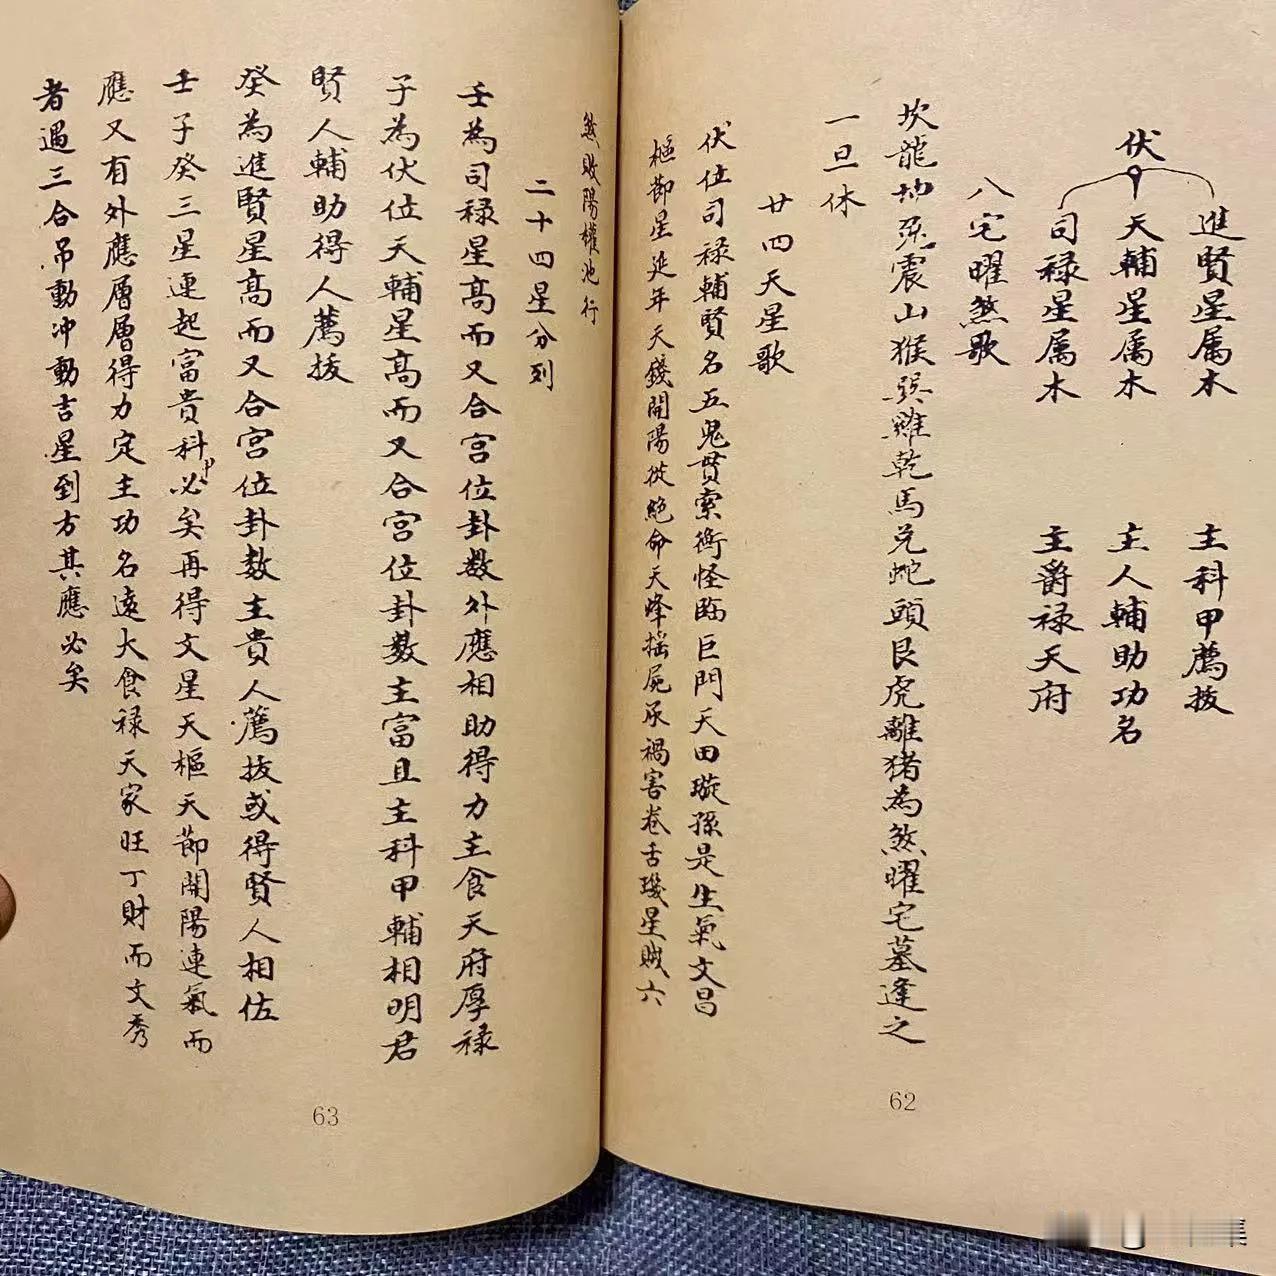 伏
進賢星属木 主科甲薦拔
天輔星属木 主人輔助功名
司禄星属木 主爵禄天府
八宅曜煞歌
坎龍坤兎震山猴巽雞乾馬兌蛇頭艮虎離猪為煞曜宅墓逢之
一旦休
廿四天星歌
伏位司禄輔賢名五鬼貫索衡怪臨巨門天田璇孫是生氣文昌
樞節星延年天錢開陽從絶命天峰搖屍承禍害卷舌璣星賊六
62
煞敗陽權池行
二十四星分列
壬為司禄星高而又合宫位卦数外應相助得力主食天府厚禄
子為伏位天輔星高而又合宫位卦数主富且主科甲輔相明君
賢人輔助得人薦拔
癸為進賢星高而又合宫位卦数主貴人薦拔或得賢人相佐
壬子癸三星連起富貴科甲必矣再得文星天樞天節開陽連氣而
應又有外應層層得力定主功名遠大食禄天家旺丁財而文秀
者遇三合吊動冲動吉星到方其應必矣
63